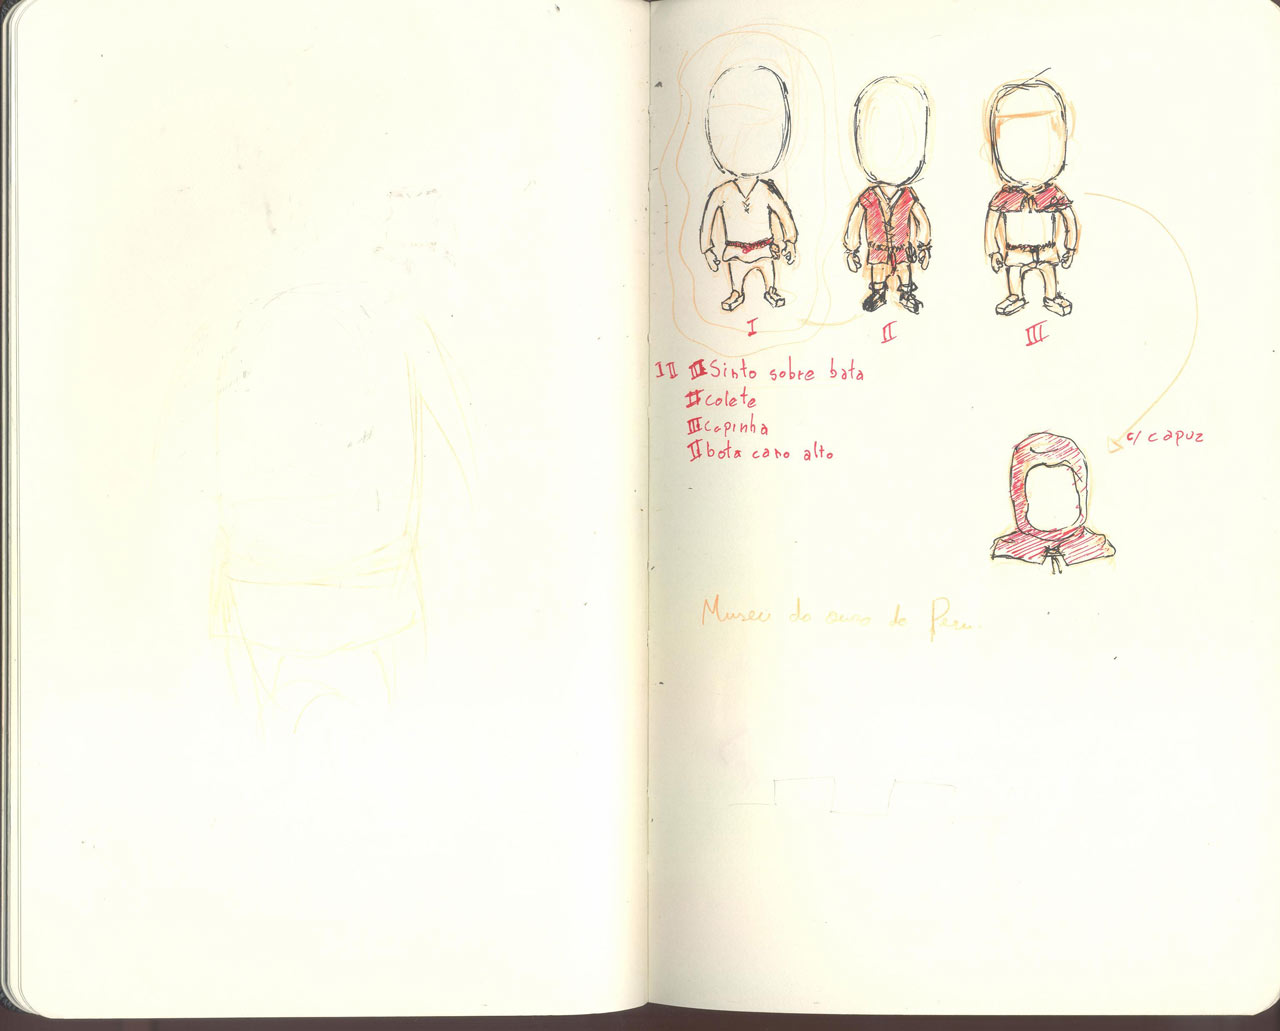 I
II
III
I II III Sinto sobre bata
II colete
III capinha
II bota cano alto
c/ capuz
Museu do ouro do Peru.